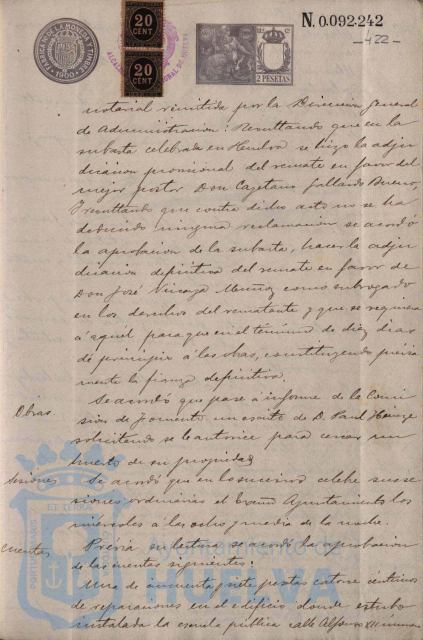 N. 0.092.242
-422-
FABRICA DE LA MONEDA Y TIMBRE
1900
20
CENT
20
CENT
2 PESETAS
notarial remitida por la Dirección general
de Administracion: Resultando que en la
subasta celebrada en Huelva se hizo la adju
dicacion provisional del remate en favor del
mejor postor Don Cayetano Gallardo Bueno,
y resultando que contra dicho acto no se ha
deducido ninguna reclamacion, se acordó
la aprobacion de la subasta, hacer la adju
dicacion definitiva del remate en favor de
Don José Vizcaya Muñoz como subrogado
en los derechos del rematante y que se requiera
á aquel para que en el término de diez dias
dé principio á las obras, constituyendo previa
mente la fianza definitiva.
Obras.
Se acordó que pase á informe de la Comi
sion de Fomento un escrito de D. Paul
solicitando se le autorice para cercar un
huerto de su propiedad
Sesiones
Se acordó que en lo sucesivo celebre sus se
siones ordinarias el Excmo Ayuntamiento los
miércoles á las ocho y media de la noche.
Cuentas
Previa su lectura se acordó la aprobacion
de las cuentas siguientes:
Una de cincuenta y siete pesetas catorce céntimos
de reparaciones en el edificio donde estubo
instalada la escuela pública calle Alfonso XII
PORTUS MARIS ET TERRAE CUSTODIA
Ayuntamiento de
HUELVA